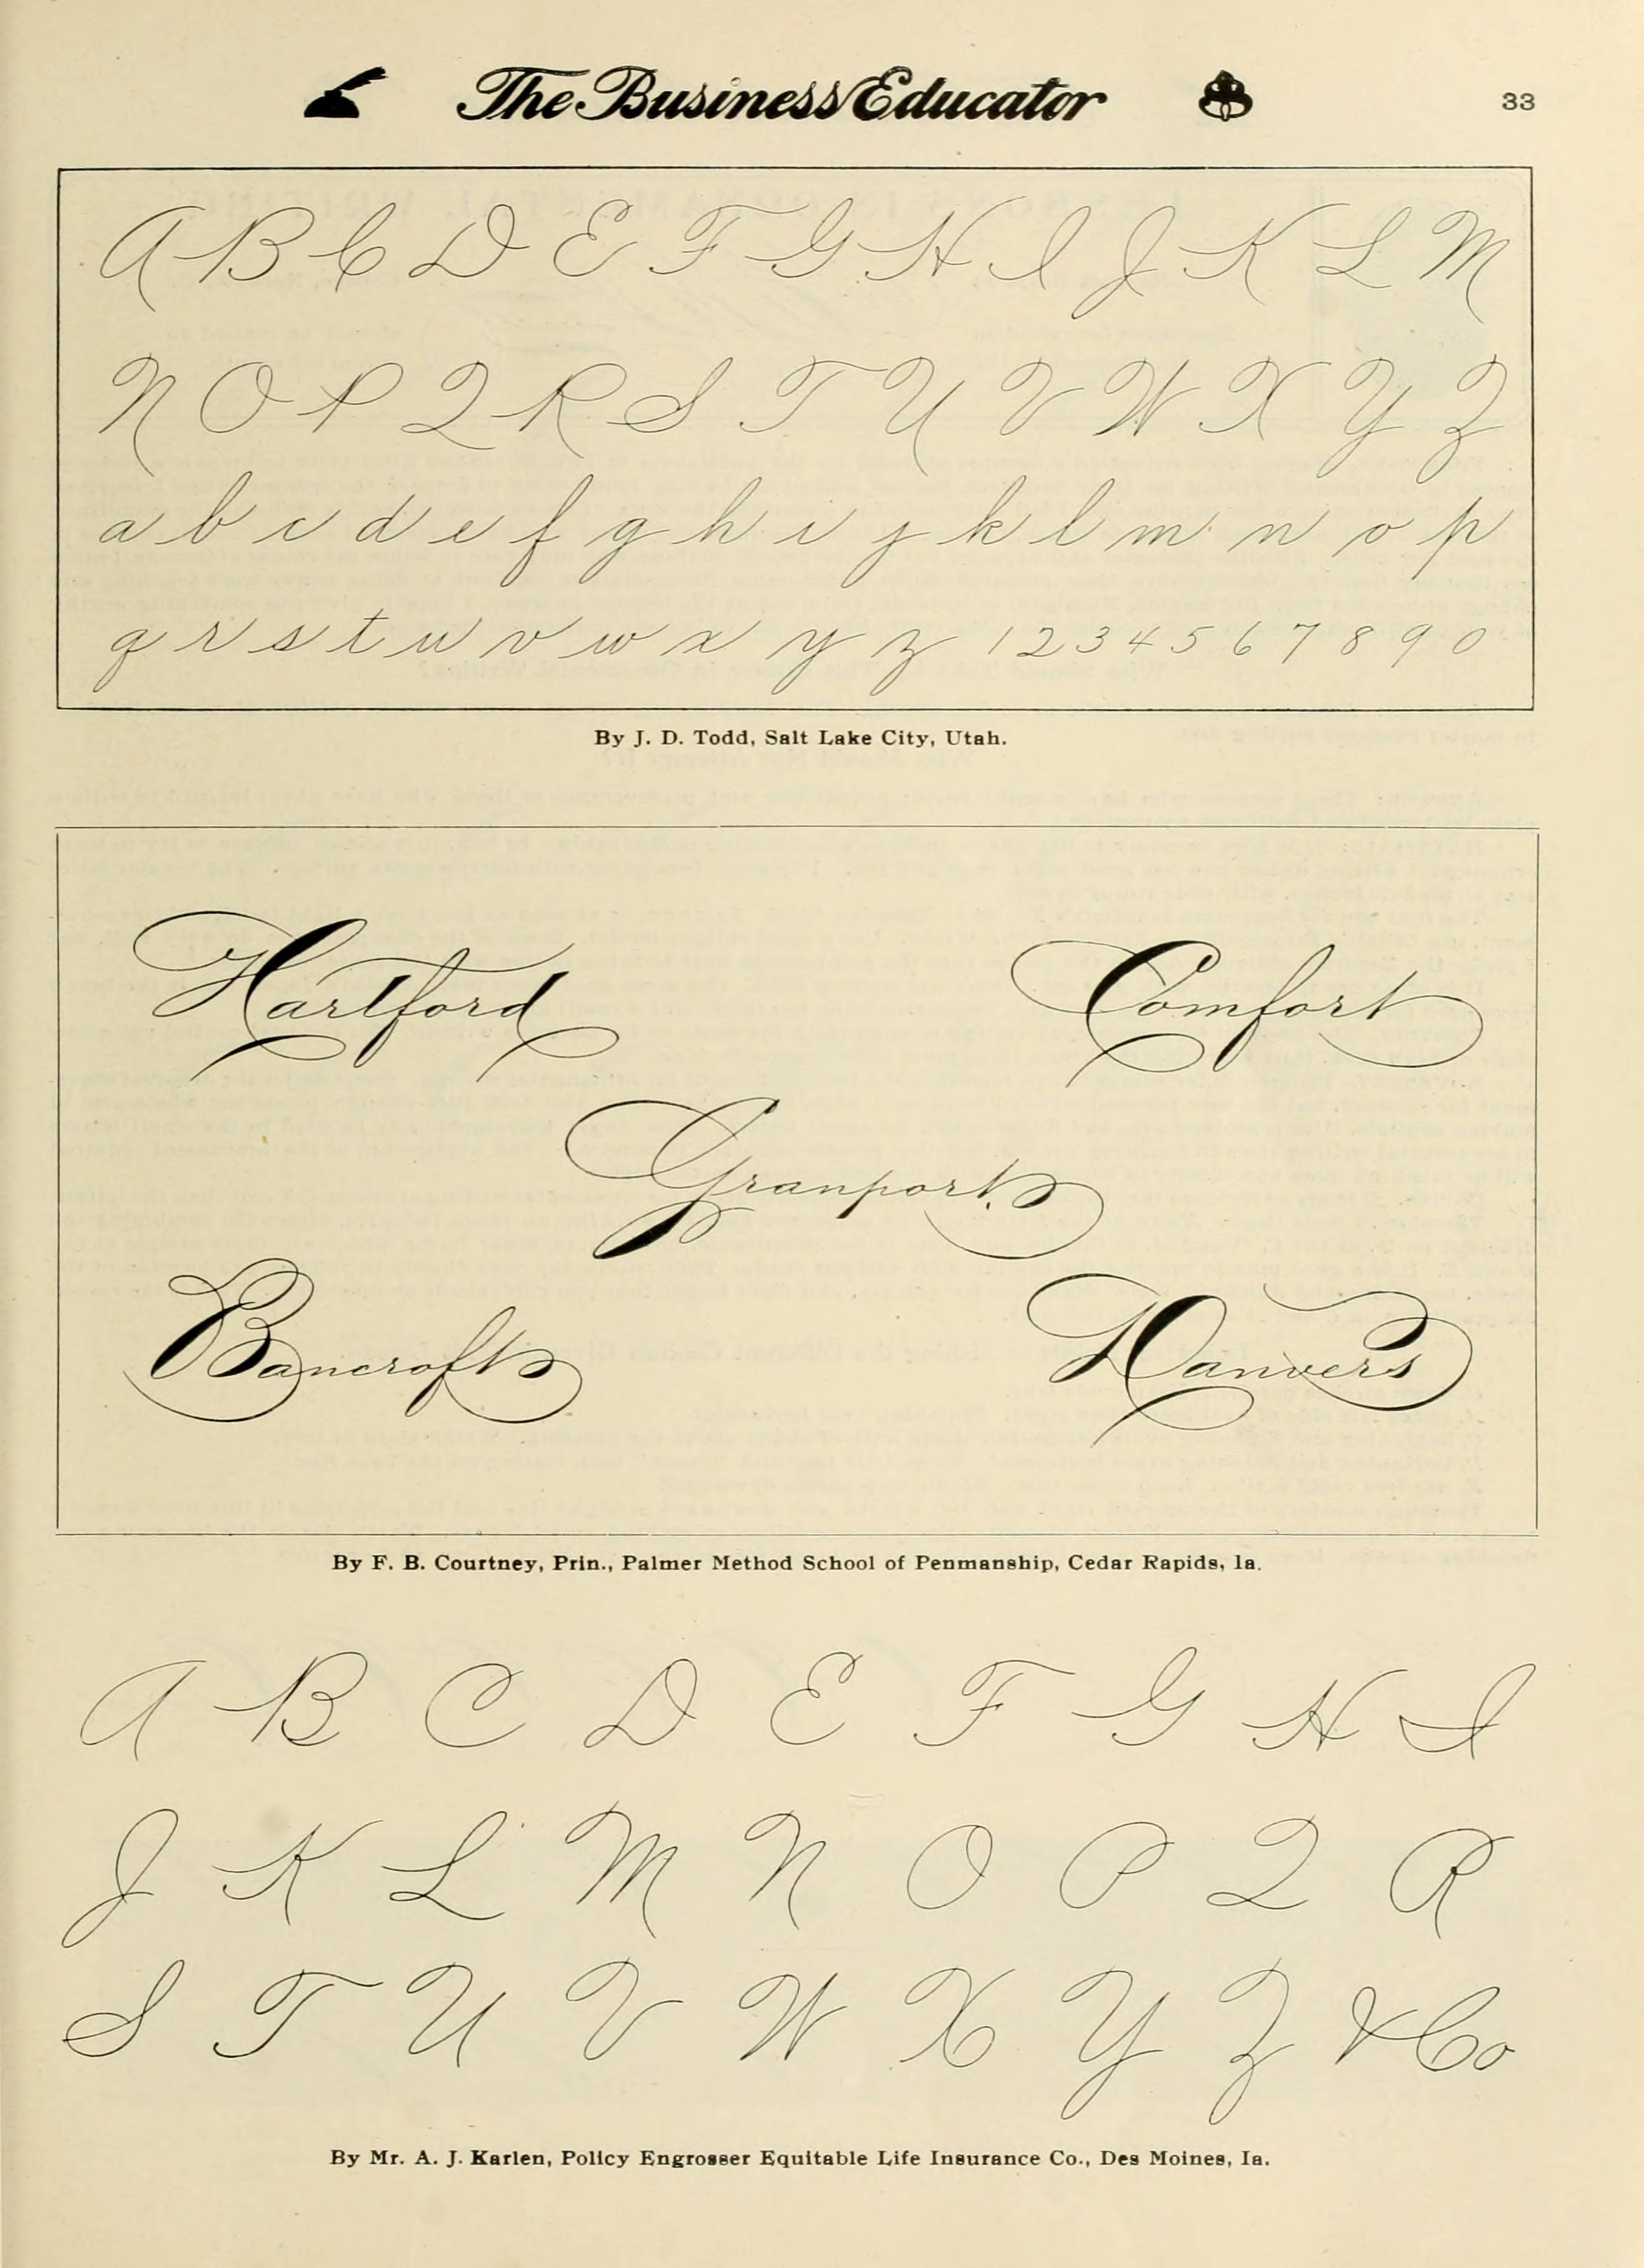 The Business Educator 33
A B C D E F G H I J K L M
N O P Q R S T U V W X Y Z
a b c d e f g h i j k l m n o p
q r s t u v w x y z 1 2 3 4 5 6 7 8 9 0
By J. D. Todd, Salt Lake City, Utah.
Hartford Comfort
Granport.
Bancroft Danvers
By F. B. Courtney, Prin., Palmer Method School of Penmanship, Cedar Rapids, Ia.
A B C D E F G H I
J K L M N O P Q R
S T U V W X Y Z & Co
By Mr. A. J. Karlen, Policy Engrosser Equitable Life Insurance Co., Des Moines, Ia.